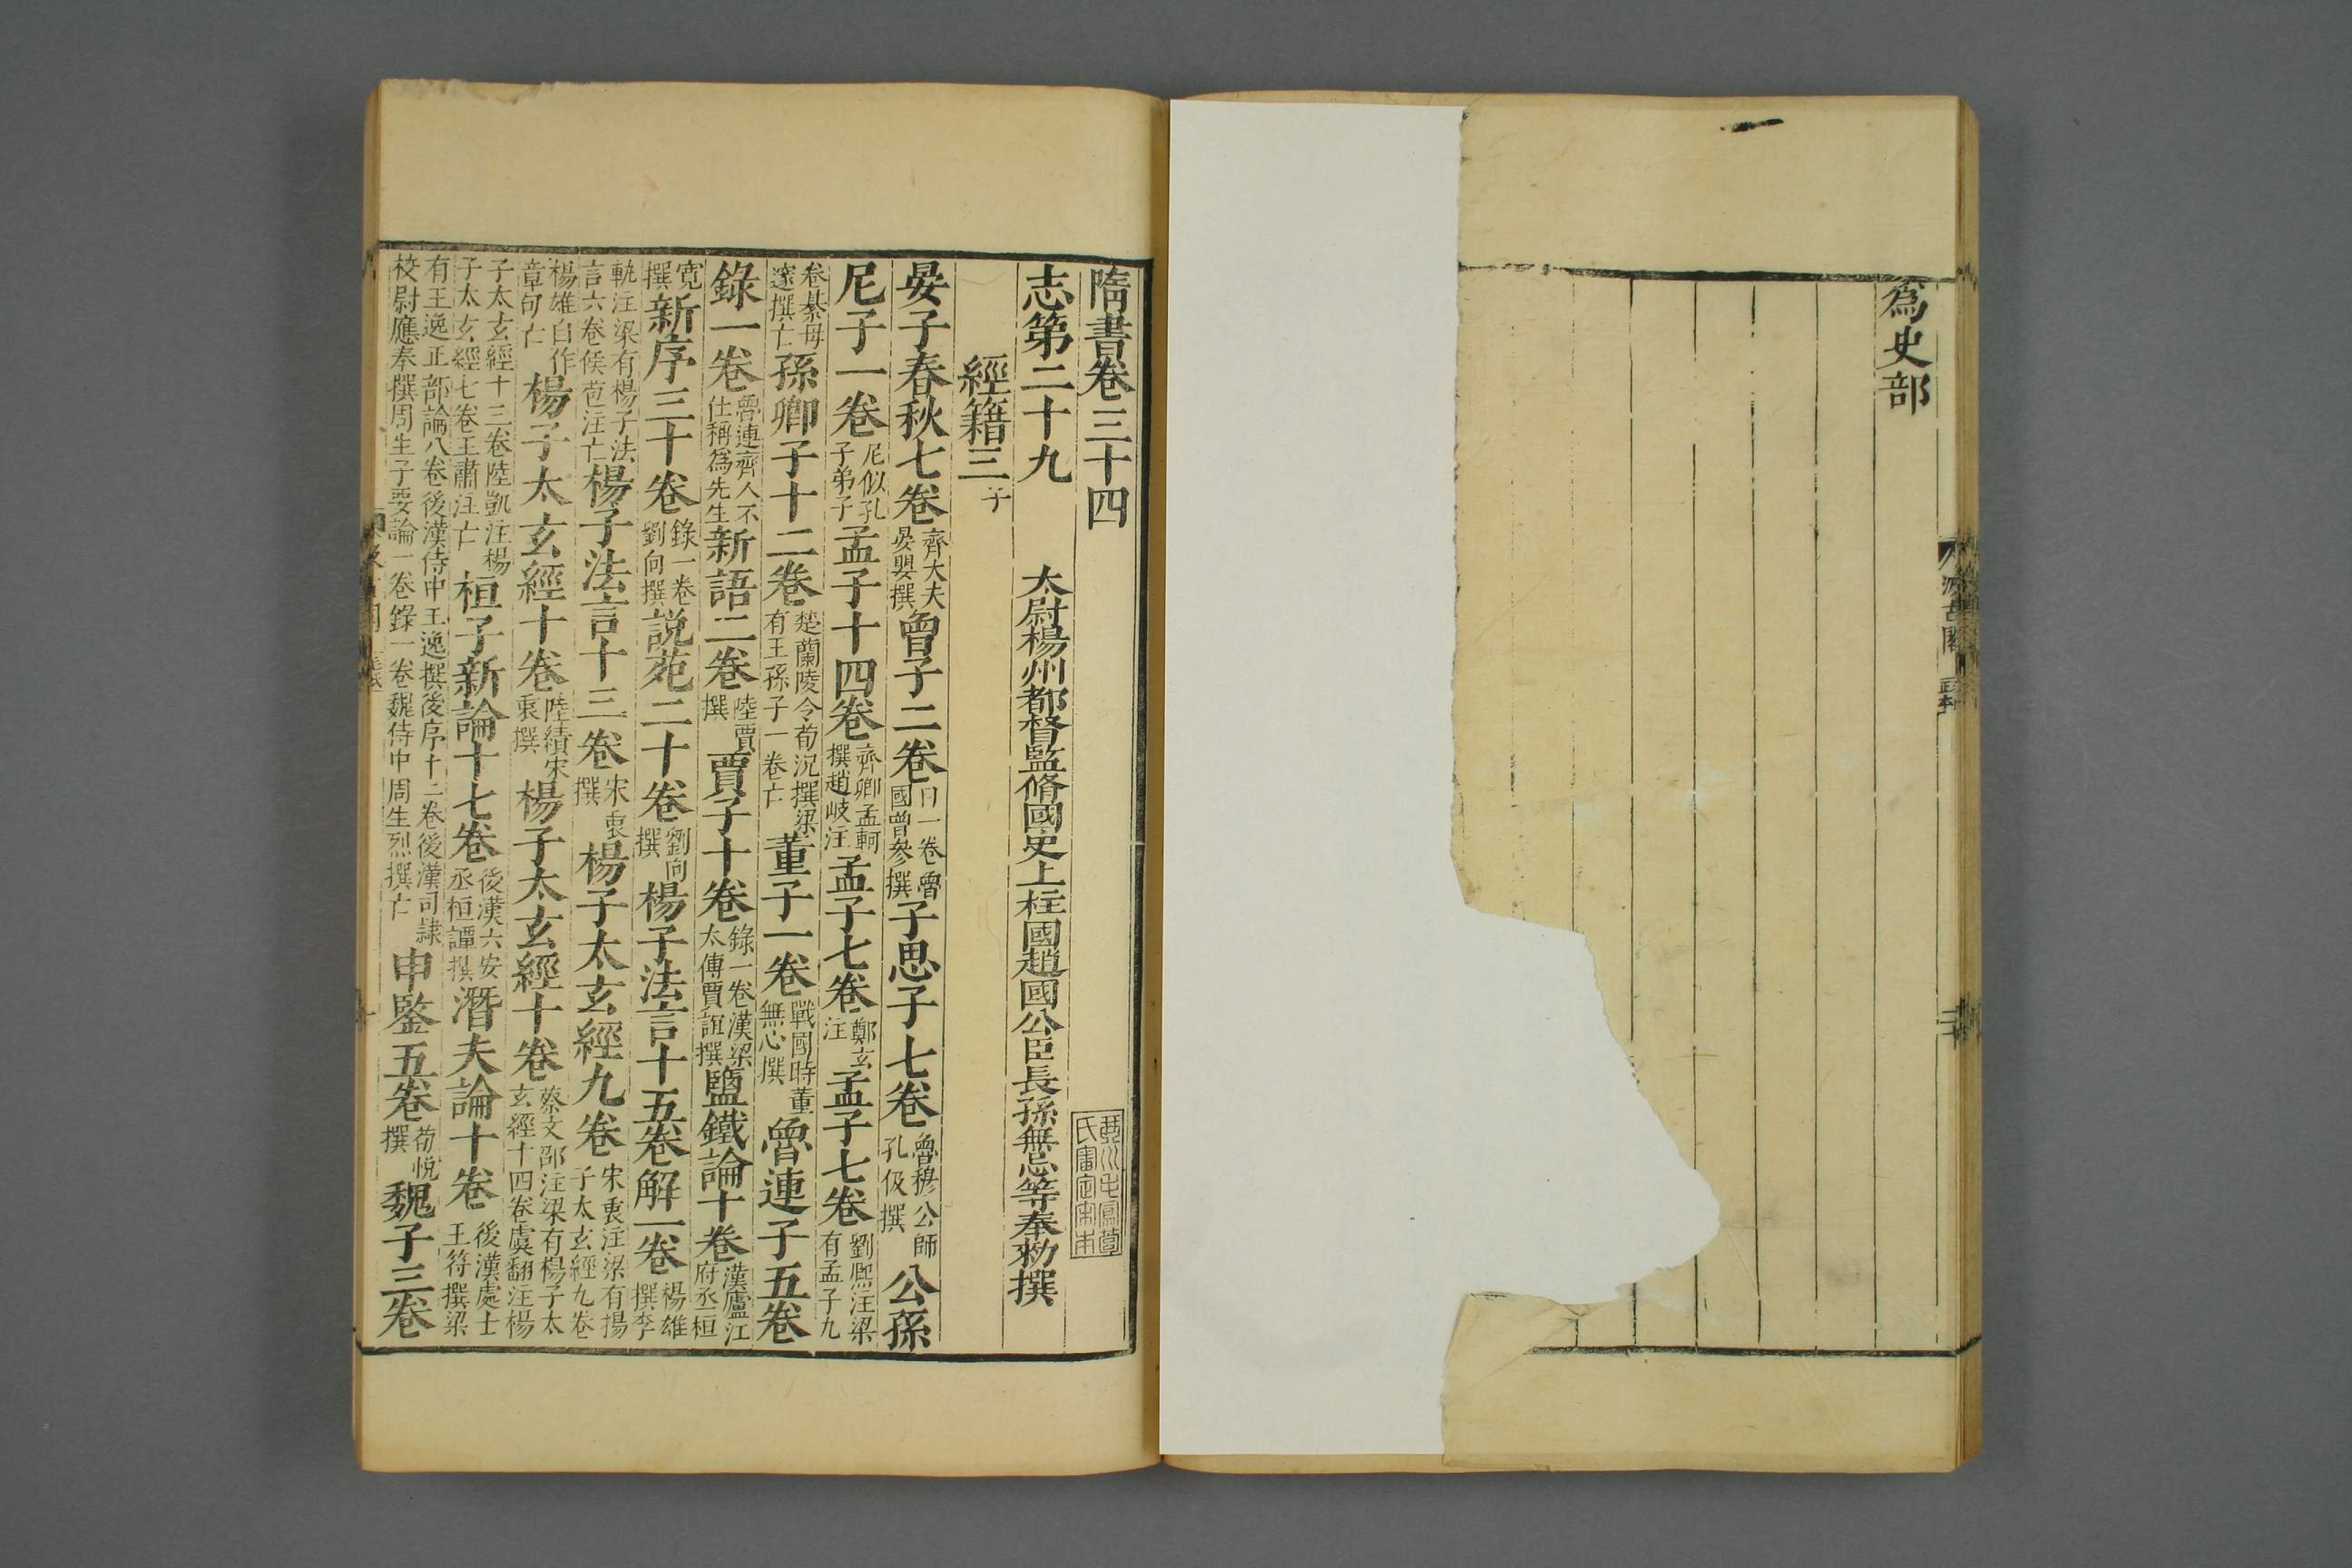 爲史部
汲古閣
隋書卷三十四
志第二十九　太尉楊州都督監脩國史上柱國趙國公臣長孫無忌等奉勑撰
經籍三 子
晏子春秋七卷 齊大夫晏嬰撰 曾子二卷 目一卷魯國曾參撰 子思子七卷 魯穆公師孔伋撰 公孫
尼子一卷 尼似孔子弟子 孟子十四卷 齊卿孟軻撰趙岐注 孟子七卷 鄭玄注 孟子七卷 劉熙注梁有孟子九
卷綦毋邃撰亡 孫卿子十二卷 楚蘭陵令荀況撰梁有王孫子一卷亡 董子一卷 戰國時董無心撰 魯連子五卷
錄一卷 魯連齊人不仕稱爲先生 新語二卷 陸賈撰 賈子十卷 錄一卷漢梁太傅賈誼撰 鹽鐵論十卷 漢廬江府丞桓
寬撰 新序三十卷 錄一卷劉向撰 說苑二十卷 劉向撰 楊子法言十五卷解一卷 楊雄撰李
軌注梁有楊子法言六卷侯苞注亡 楊子法言十三卷 宋衷撰 楊子太玄經九卷 宋衷注梁有揚子太玄經九卷
楊雄自作章句亡 楊子太玄經十卷 陸績宋衷撰 楊子太玄經十卷 蔡文邵注梁有楊子太玄經十四卷虞翻注楊
子太玄經十三卷陸凱注楊子太玄經七卷王肅注亡 桓子新論十七卷 後漢六安丞桓譚撰 潛夫論十卷 後漢處士王符撰梁
有王逸正部論八卷後漢侍中王逸撰後序十二卷後漢司隸校尉應奉撰周生子要論一卷錄一卷魏侍中周生烈撰亡 申鑒五卷 荀悅撰 魏子三卷